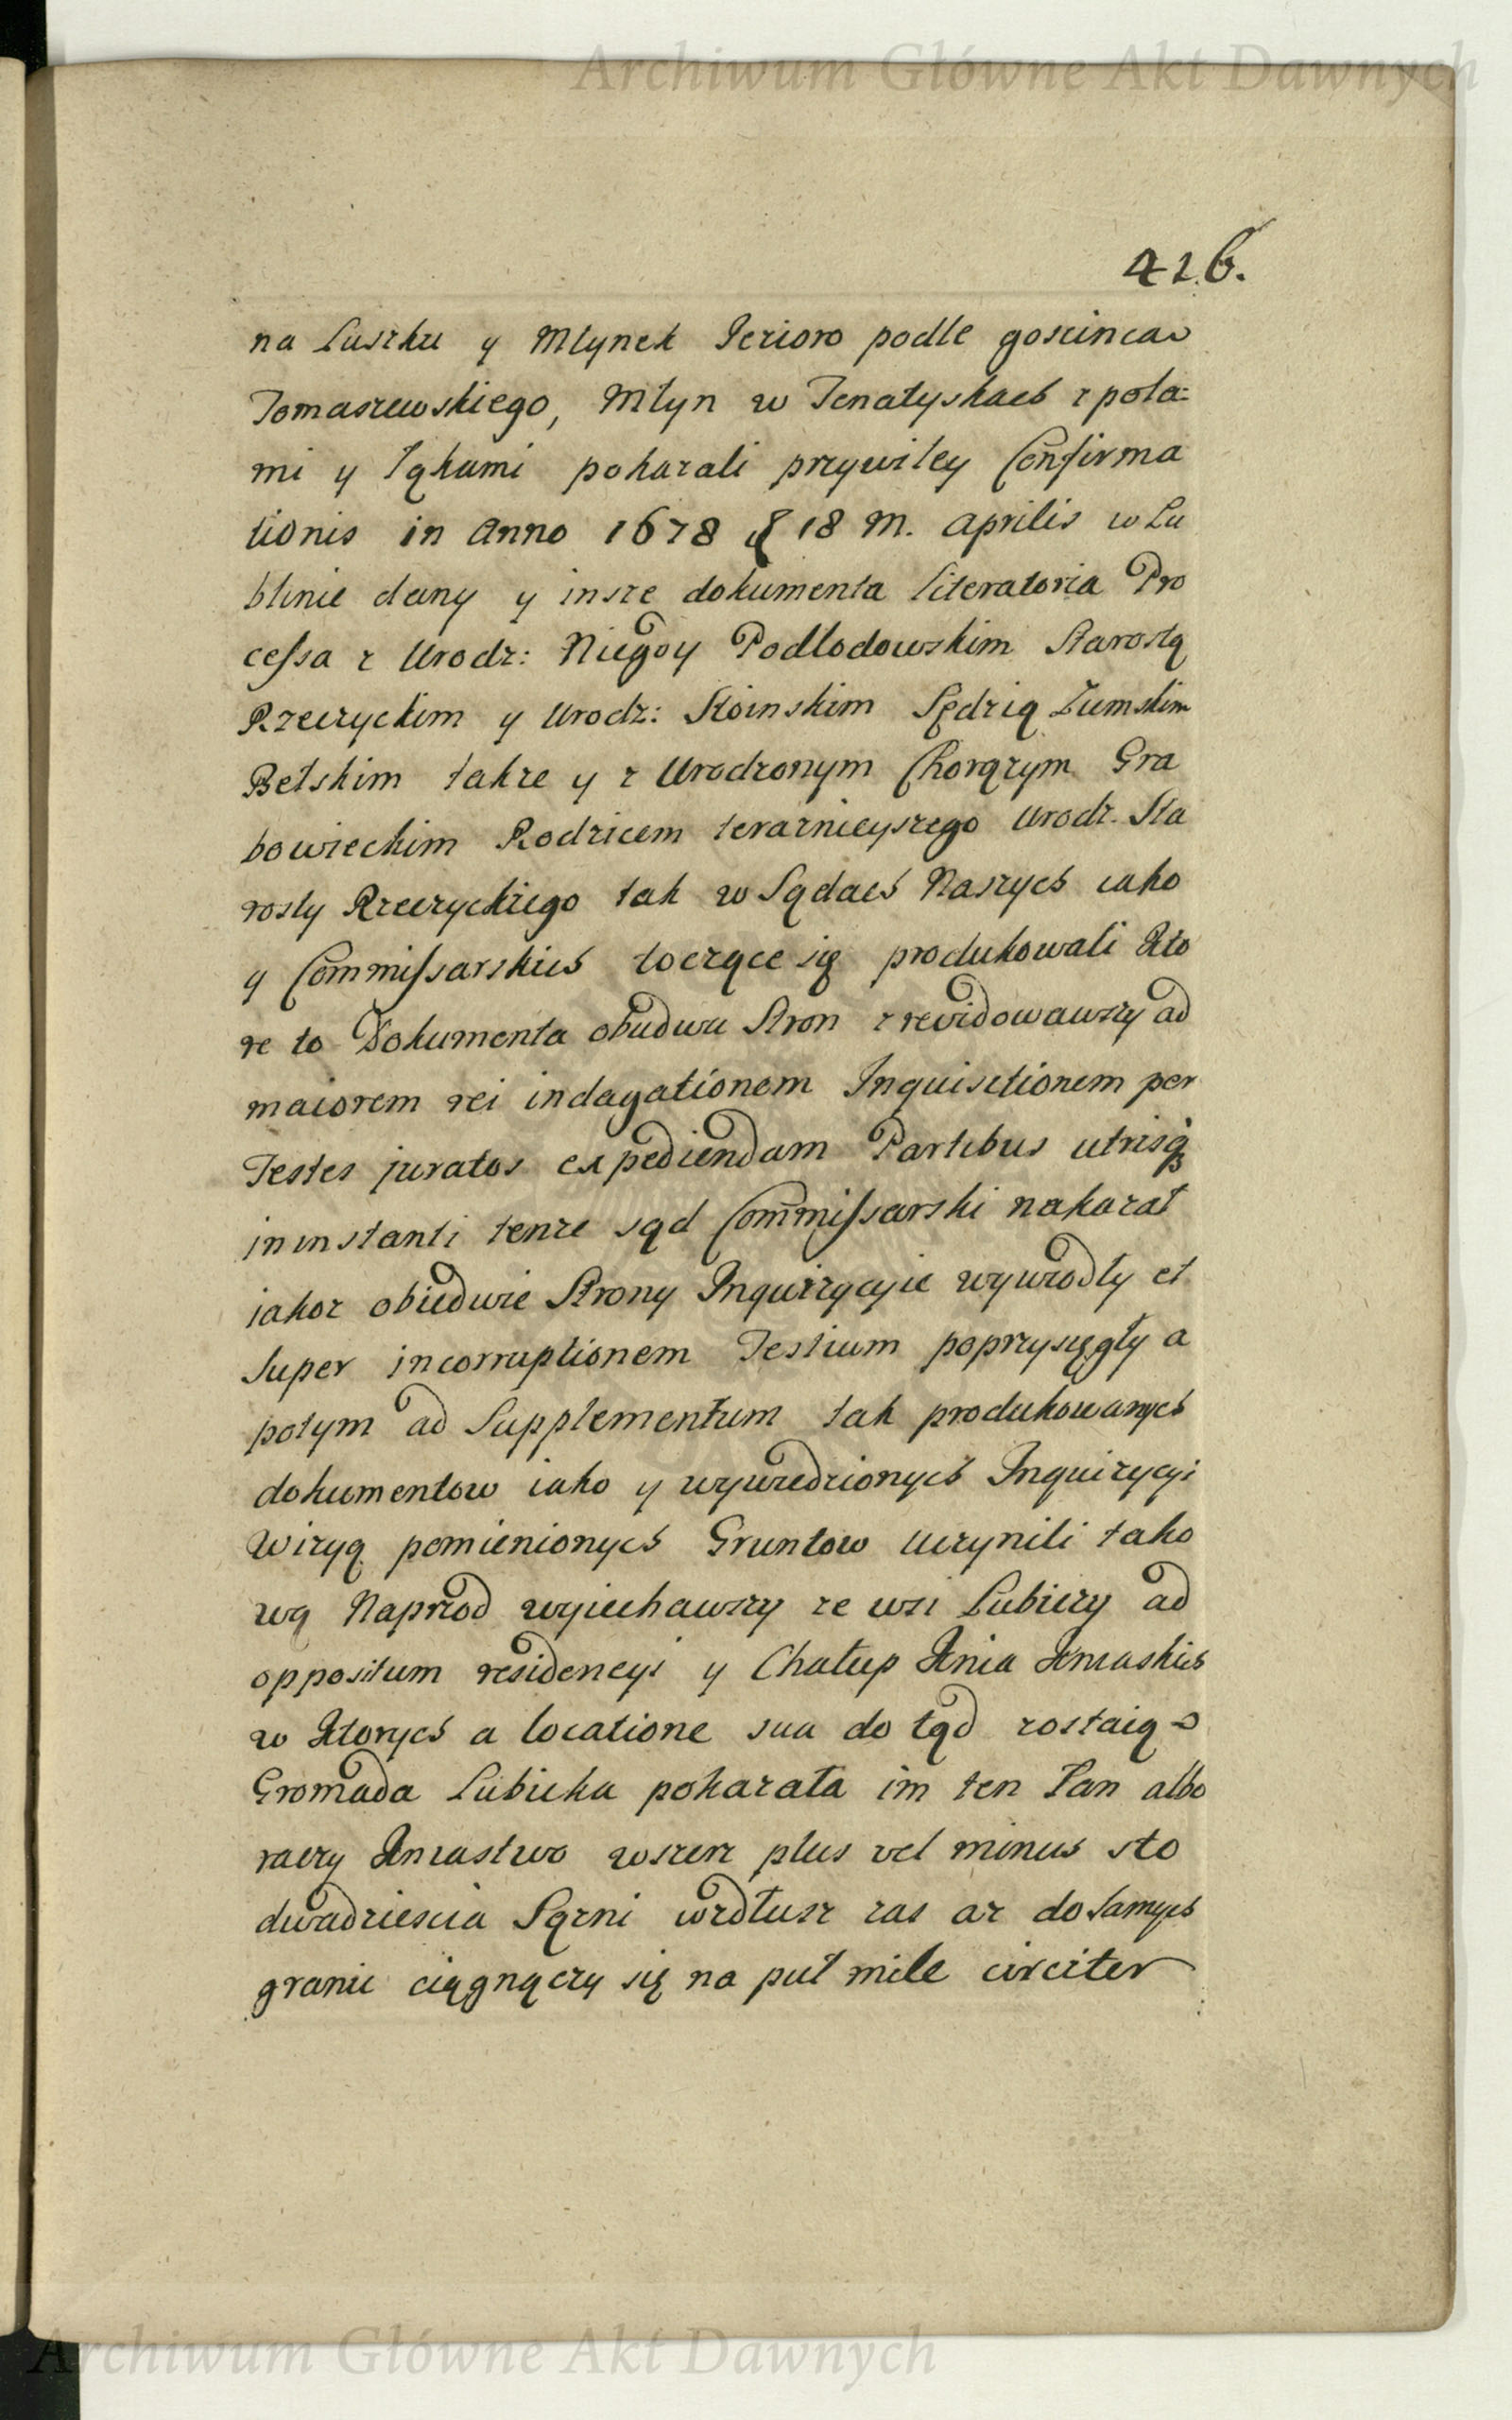 Archiwum Główne Akt Dawnych
426.
na Luszku y Mlynek Jezioro podle goscinca
Tomaszewskiego, Młyn w Tenatyskach z pola=
mi y łąkami pokazali przywiley Confirma
tionis in Anno 1678 d 18 M. Aprilis w Lu
blinie dany y insze dokumenta literatoria Pro
cessa z Urodz: Niegoy Podlodowskim Starostą
Rzeczyckim y Urodz: Stoinskim Sędzią Ziemskim
Bełskim takze y z Urodzonym Chorązym Gra
bowieckim Rodzicem teraznieyszego Urodz. Sta
rosty Rzeczyckiego tak w Sądach Naszych iako
y Commissarskich toczące się produkowali Kto
re to Dokumenta obudwu Stron zrevidowawszy ad
maiorem rei indagationem Inquisitionem per
Testes juratos expediendam Partibus utrisq
in instanti tenze sąd Commissarski nakazał
jakoz obiedwie Strony Inquizycyie wywiodły et
super incorruptionem Testium poprzysięgły a
potym ad Supplementum tak produkowanych
dokumentow iako y wywiedzionych Inquizycyi
Wizyą pomienionych Gruntow Uczynili tako
wą Naprzod wyiechawszy ze wsi Lubiczy ad
oppositum residencyi y Chałup Knia Kniaskich
w Ktorych a locatione sua do tąd zostaią
Gromada Lubicka pokazała im ten Łan albo
raczy Kniastwo wszerz plus vel minus sto
dwadziescia Sązni wzdłusz zas az do samych
granic ciągnączy się na puł mile circiter
Archiwum Główne Akt Dawnych